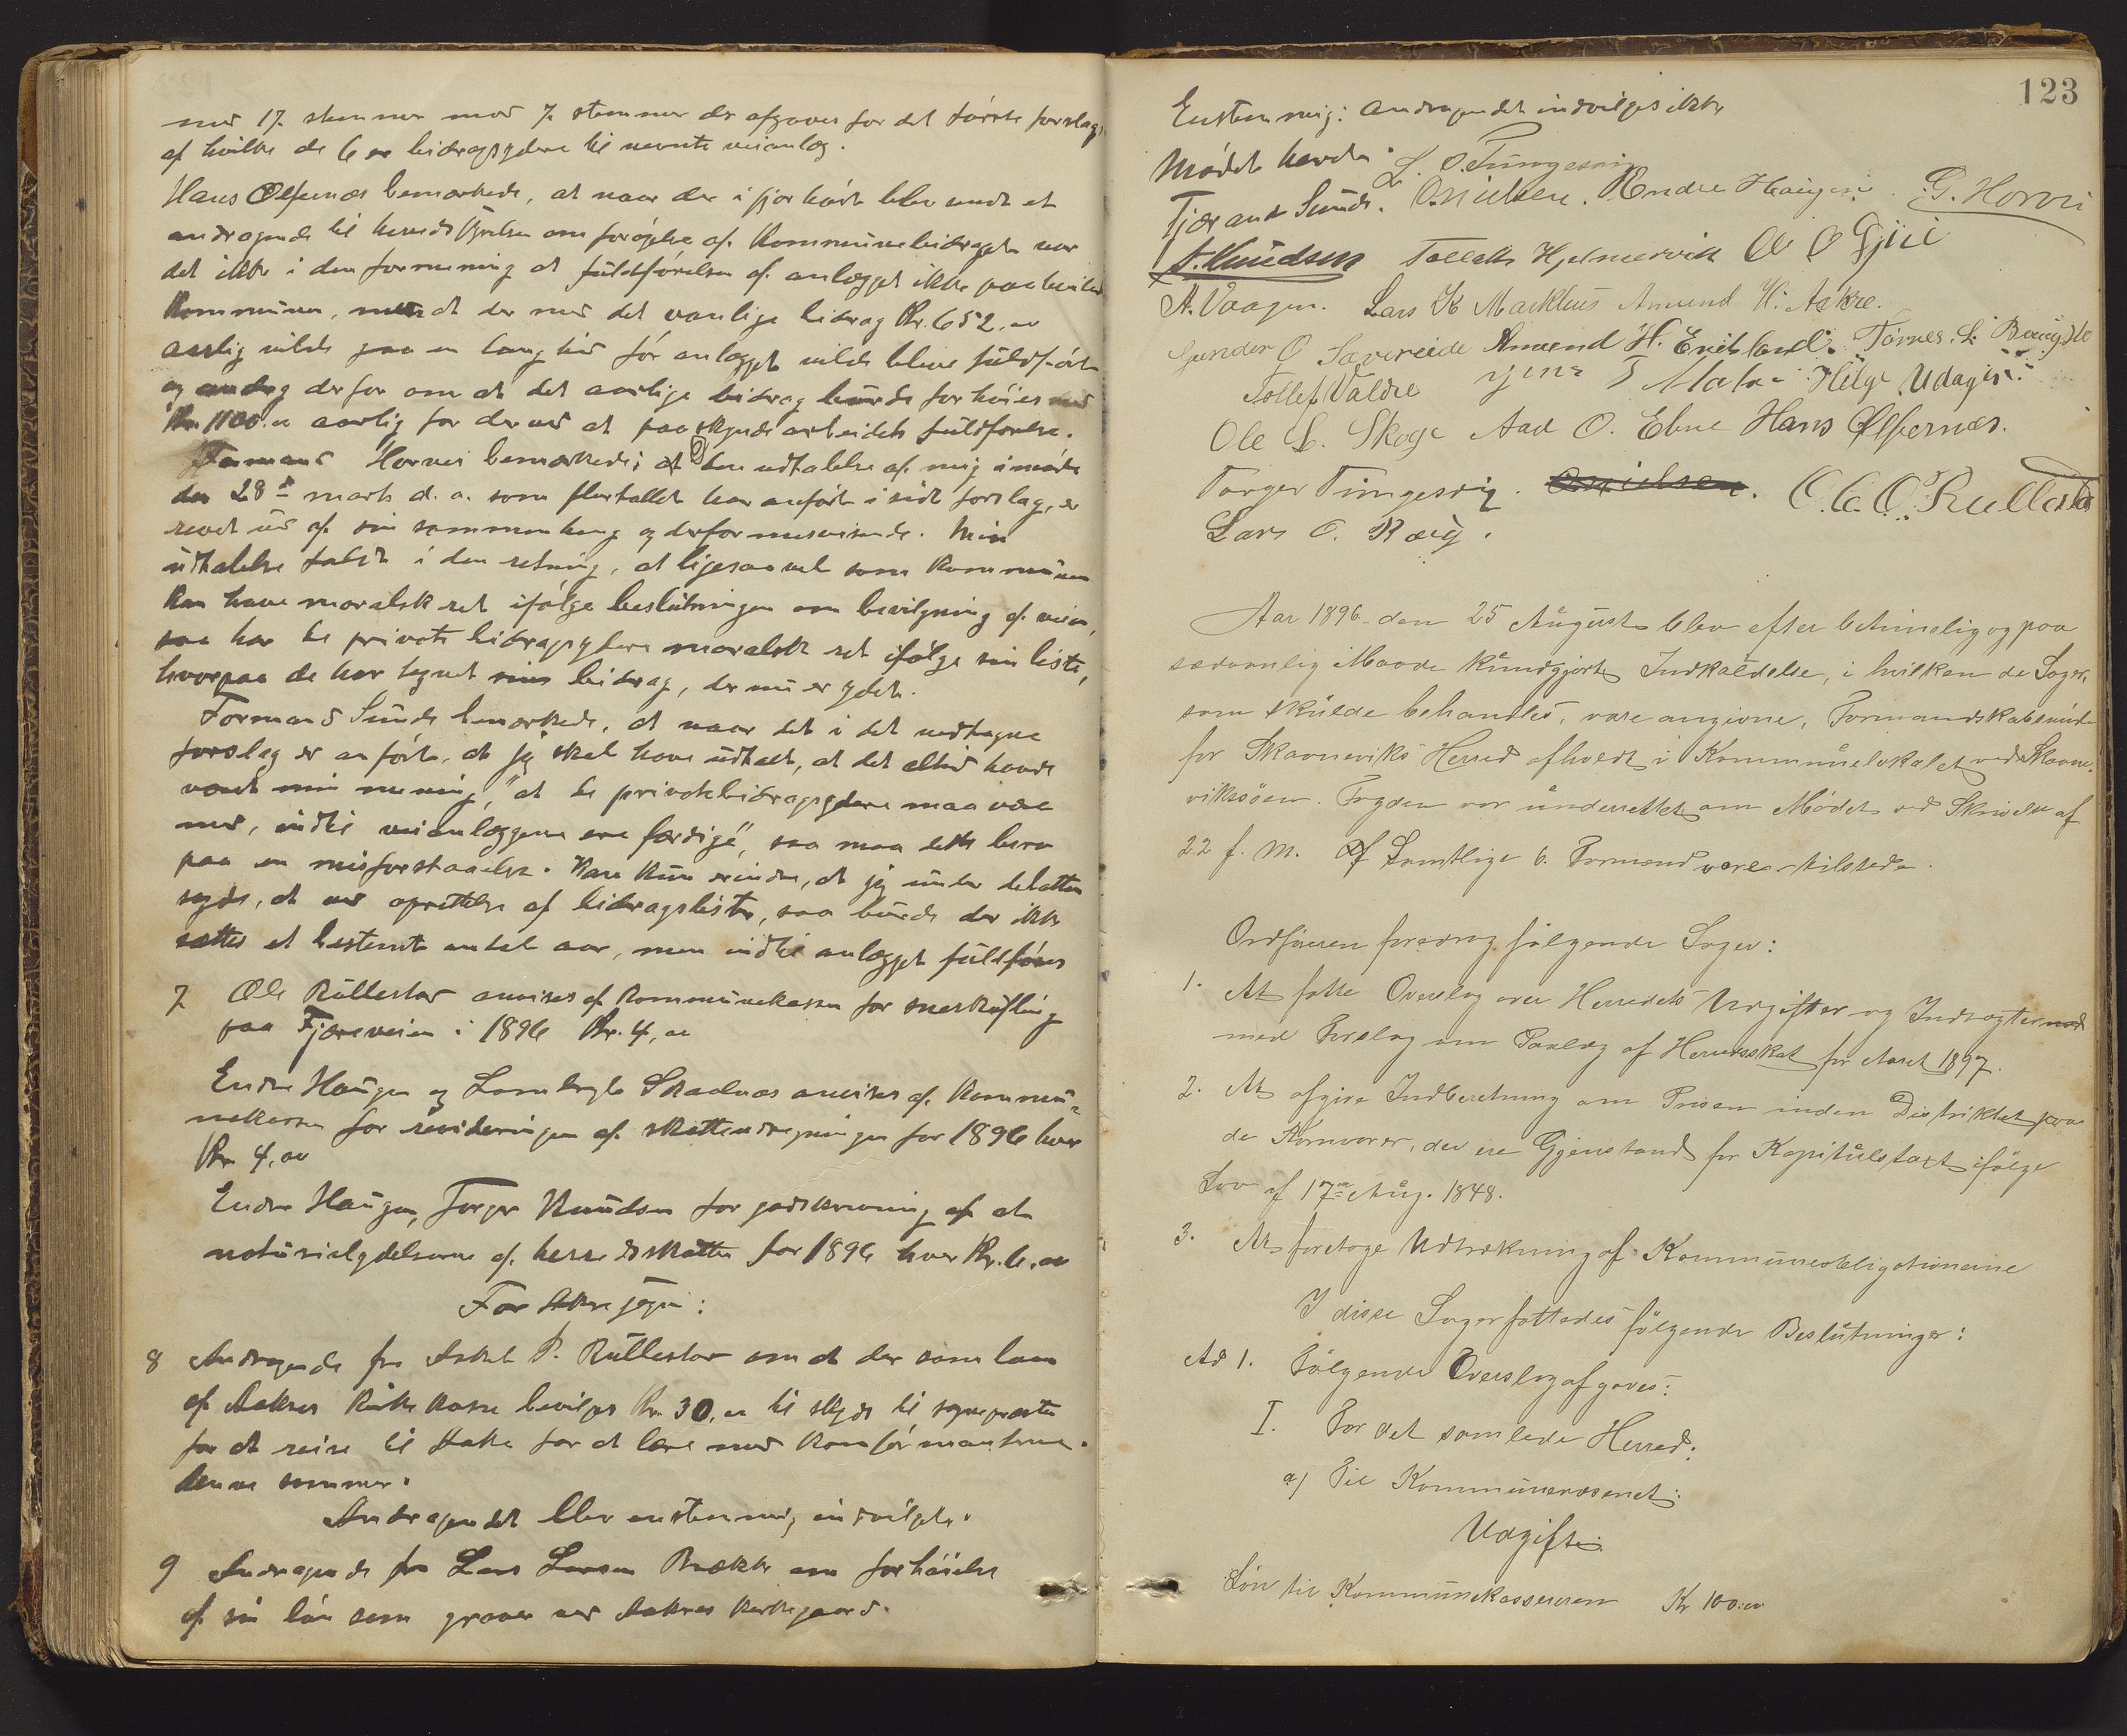 med 17 stemmer mod 7 stemmer der afgaves for det første forslag,
af hvilke de 6 er bidragsydere til nevnte veianlæg.
Hans Ølfernæs bemærkede, at naar der i fjor høst blev sendt et
andragende til herredsstyrelsen om forøgelse af kommunebidraget var
det ikke i den formening at fuldførelsen af anlægget ikke paahviled
kommunen, men at der med det vanlige bidrag Kr. 652,oo
aarlig vilde gaa en lang tid før anlægget vilde blive fuldført
og androg derfor om at det aarlige bidrag burde forhøies med
Kr. 1100.oo aarlig for derved at paaskynde arbeidets fuldførelse.
Formand Horvei bemærkede; at den udtalelse af mig i møde
den 28de marts d. a. som flertallet har anført i sidt forslag, er
revet ud af sin sammenheng og derfor misvisende. Min
udtalelse faldt i den retning, at ligesaavel som kommunen
kan have moralsk ret ifølge beslutningen om bevilgning af veien,
saa har de private bidragsydere moralsk ret ifølge sin liste,
hvorpaa de har tegnet sine bidrag, der nu er ydet.
Formand Sunde bemærkede, at naar det i det vedtagne
forslag er anført, at jeg skal have udtalt, at det altid havde
været min mening, "at de private bidragsydere maa være
med, indtil veianlæggene ere færdige", saa maa dette bero
paa en misforstaaelse. Kan kun erindre, at jeg under debatten
sagde, at ved oprettelse af bidragslister, saa burde der ikke
sættes et bestemt antal aar, men indtil anlægget fuldføres
7 Ole Rullestad anvises af kommunekassen for sneskufling
paa Fjæreveien i 1896 Kr. 4,oo
Endre Haugen og Skaalnæs anvises af kommu-
nekassen for revideringen af skatteudregningen for 1896 hver
Kr 4,oo
Endre Haugen, Torger Knudsen for godskrivning af
naturialydelserne af herredsskatten for 1896 hver Kr. 6,oo
For Akre sogn:
8 Andragende fra Askel P. Rullestad om at der som laan
af Aakres kirkekasse bevilges Kr 30,oo til skyds til sognepresten
for at reise til Aakre for at læse med konfirmanterne
denne sommer.
Andragendet blev enstemmig indvilget.
9 Andragende fra Lars Larsen Brække om forhøielse
af sin løn som graver ved Aakres kirkegaard.
123
Enstemmig: andragendet indvilges ikke
Mødet hævet.
L. O. Tungesvig
Tjærand Sunde. O. Nielsen. Endre Haugen. G. Horvei
A. Knudsen Tollak Hjelmervik O O Gjil
A. Vaagen. Lars K Markhus Amund K. Aakre.
Gunder O Sævereide Amund H. Eikeland. Tørres L.
Tollef Valdre S Helge Udagen.
Ole L. Skoge Aad O. Ebne Hans Ølfernæs.
Torger Tungesvig. O. Nielsen. O. C. O. Rullestad
Lars O. Røeg.
Aar 1896 den 25 August blev efter betimelig og paa
sædvanlig Maade kundgjort Indkaldelse, i hvilken de Sager,
som skulde behandles, vare angivne, Formandskabsmøde
for Skaaneviks Herred afholdt i Kommunelokalet ved Skaane-
vikssøen. Fogden var underrettet om Mødet ved Skrivelse af
22 f. M. Af Samtlige 6 Formænd vare tilstede.
Ordføreren foredrog følgende Sager:
1. At fatte Overslag over Herredets Udgifter og Indtægter med
med Forslag om Paalæg af Herredsskat for Aaret 1897.
2. At afgive Indberetning om Prisen inden Distriktet paa
de Kornvarer, der ere Gjenstand for Kapitulstaxt ifølge
Lov af 17de Aug. 1848.
3. At foretage Udtrækning af Kommuneobligationerne
I disse Sager fattedes følgende Beslutninger:
Ad 1. Følgende Overslag afgaves:
I. For det samlede Herred:
a) Til Kommunevæsenet:
Udgifter
Løn til Kommunekassereren Kr 100:oo